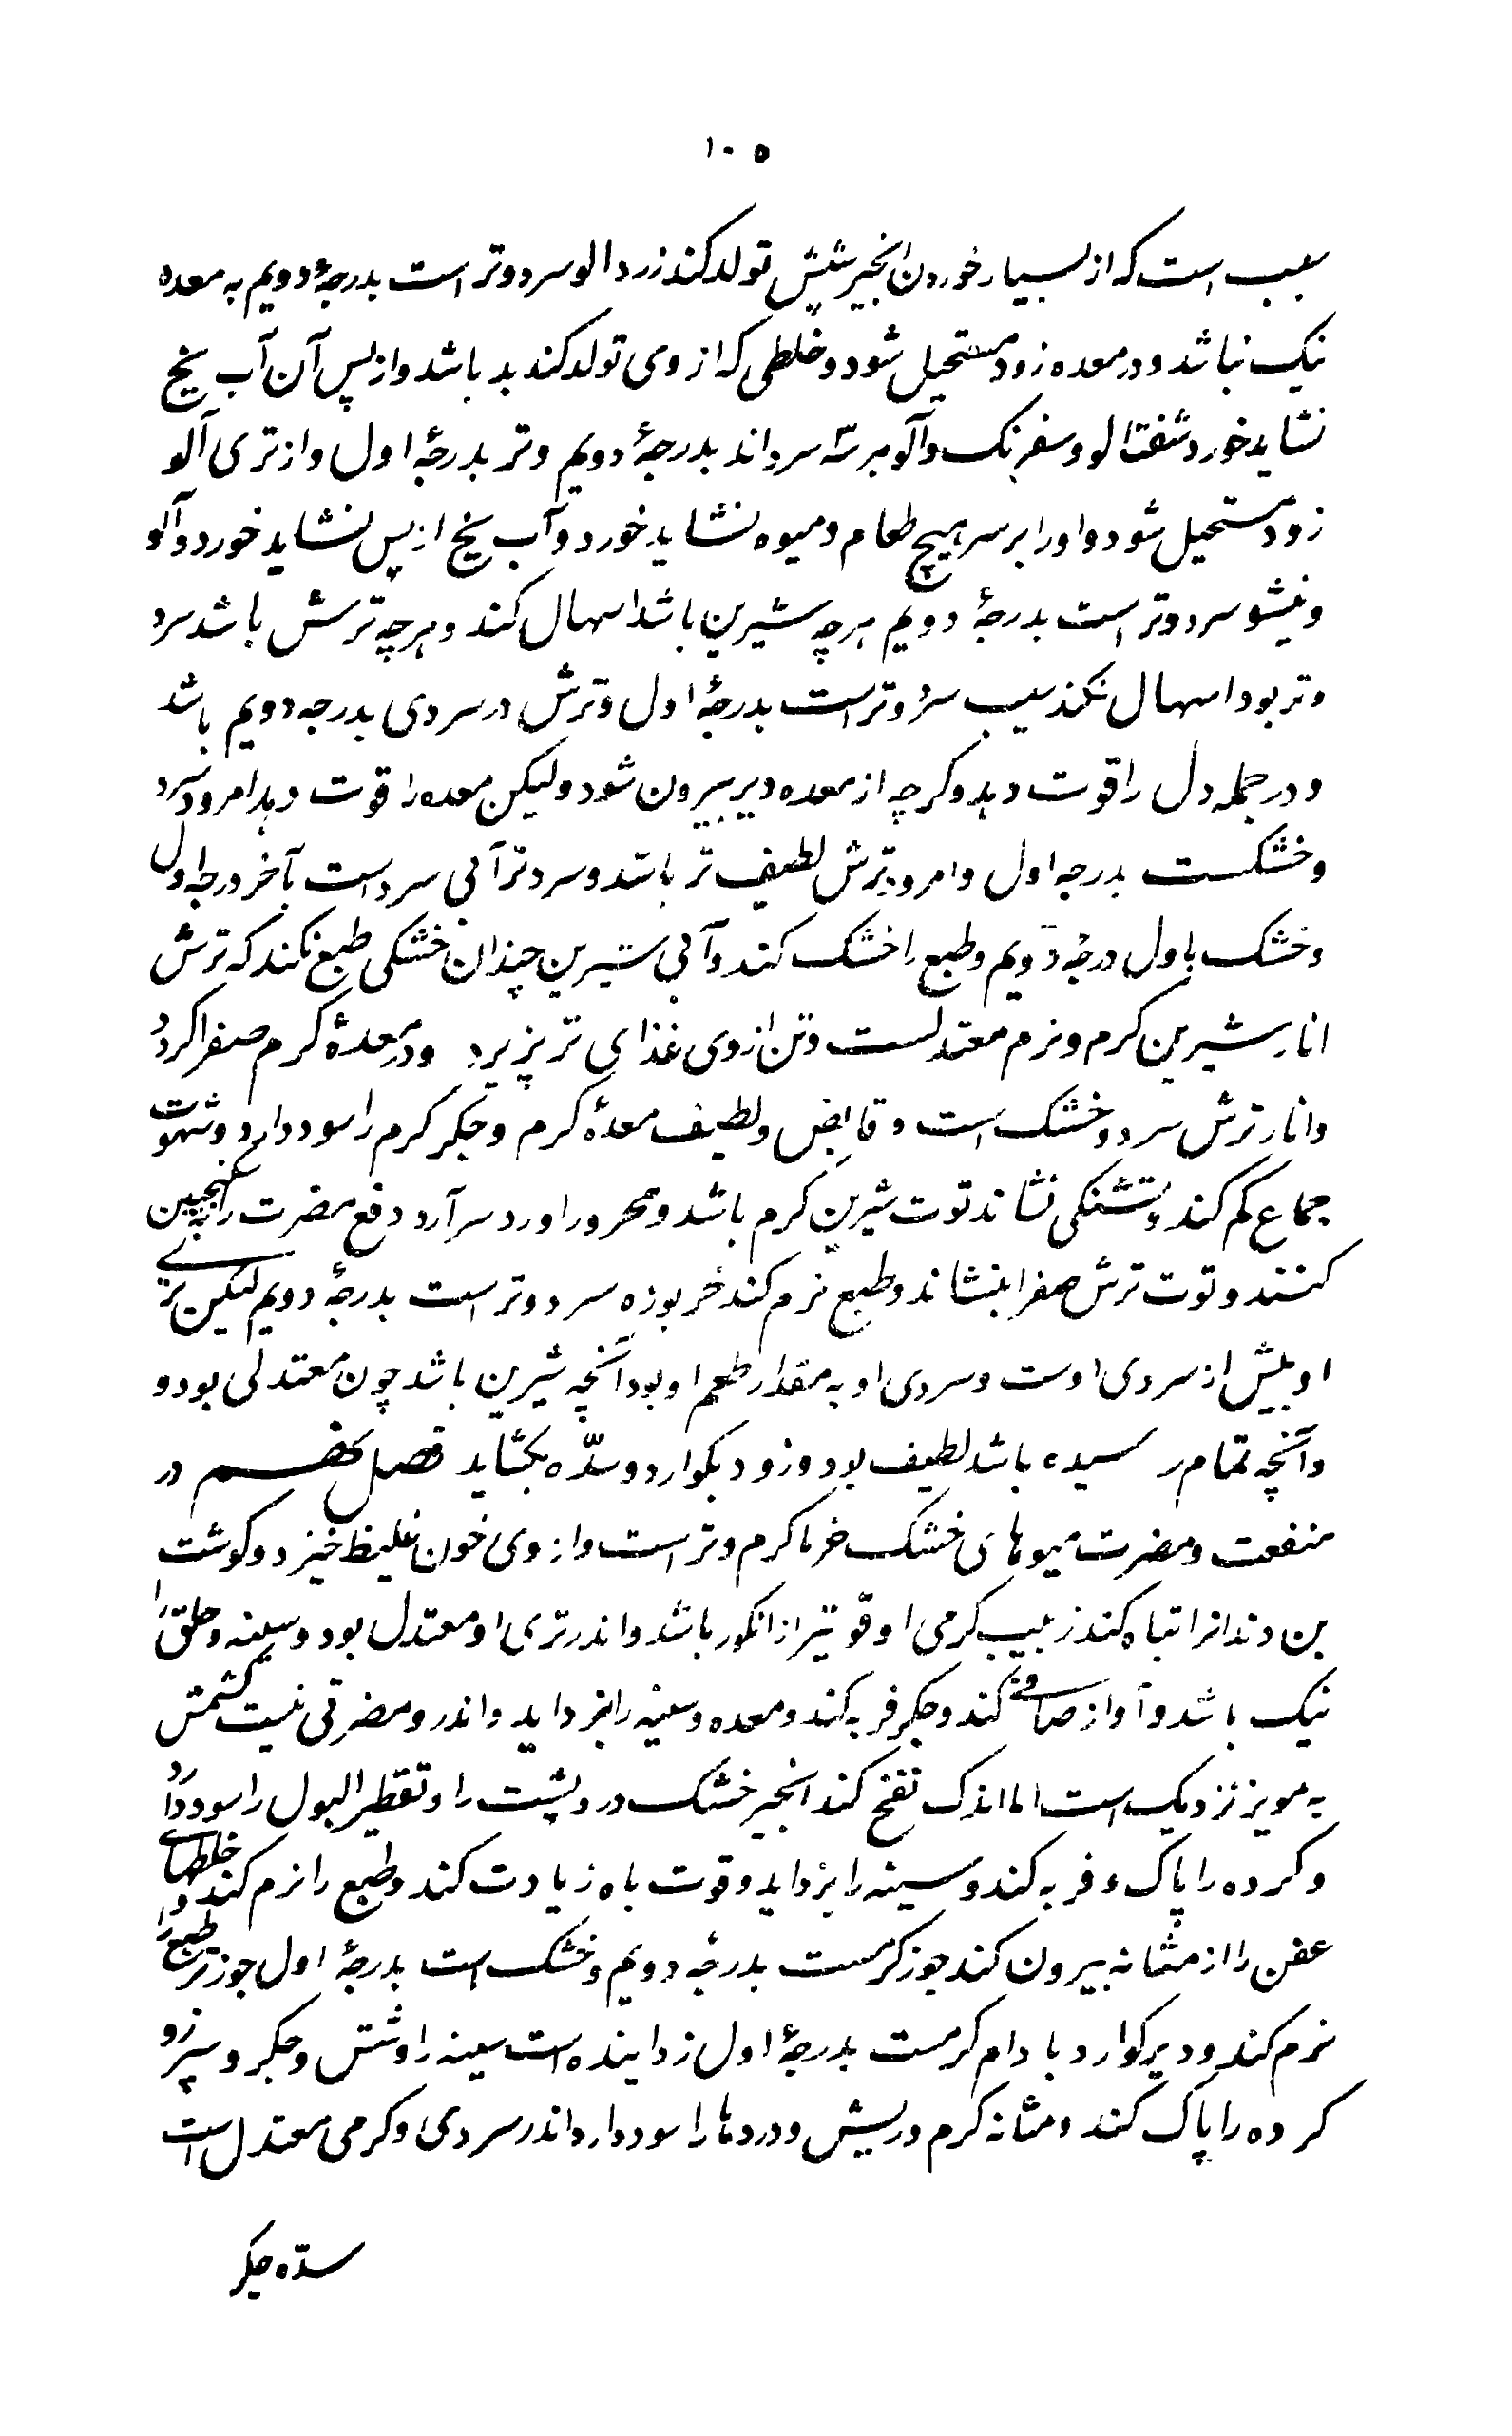 ۱۰۵
سبب است که از بسیار خوردن انجیر شپش تولد کند زردالو سرد و تر است بدرجهٔ دویم به معده
نیک نباشد و در معده زود مستحیل شود و خلطی که از وی تولد کند بد باشد و از پس آن آب یخ
نشاید خورد شفتالو و سفرنک و آلو هر سه سرداند بدرجهٔ دویم و تر بدرجهٔ اول و از تری آلو
زود مستحیل شود و او را بر سر هیچ طعام و میوه نشاید خورد و آب یخ از پس نشاید خورد و آلو
و نیشو سرد و تر است بدرجهٔ دویم هرچه شیرین باشد اسهال کند و هرچه ترش باشد سرد
و تر بود اسهال نکند سیب سرد و تر است بدرجهٔ اول و ترش در سردی بدرجه دویم باشد
و در جمله دل را قوت دهد و کرچه از معده دیر بیرون شود ولیکن معده را قوت دهد امرود سرد
و خشکست بدرجه اول و امرود ترش لطیف تر باشد و سردتر آبی سرد است بآخر درجه اول
و خشک باول درجهٔ دویم و طبع را خشک کند و آبی شیرین چندان خشکی طبع نکند که ترش
انار شیرین کرم و نرم معتدلست و تن از وی غذای تر پزیرد و در معدهٔ کرم صفرا کردد
و انار ترش سرد و خشک است و قابض و لطیف معدهٔ کرم و جکر کرم را سود دارد و شهوت
جماع کم کند و تشنکی نشاند توت شیرین کرم باشد و محرور را درد سر آرد دفع مضرت را به سکنجبین
کنند و توت ترش صفرا بنشاند و طبع نرم کند خربوزه سرد و تر است بدرجهٔ دویم لیکن تری
او بیش از سردی اوست و سردی او به مقدار طعم او بود آنچه شیرین باشد چون معتدلی بود و
و آنچه تمام رسیده باشد لطیف بود و زود بکوارد و سدّه بکشاید فصل در
منفعت و مضرت میوهای خشک خرما کرم و تر است و از وی خون غلیظ خیزد و کوشت
بن دندانرا تباه کند زبیب کرمی او قوی‌تر از انکور باشد و اندر تری او معتدل بود و سینه و حلق را
نیک باشد و آواز صافی کند و جکر فربه کند و معده و سینه را بزداید و اندرو مضرتی نیست کشمش
به مویز نزدیک است اما اندک نفخ کند انجیر خشک درد پشت را و تقطیر البول را سود دارد
و کرده را پاک و فربه کند و سینه را بزداید و قوت باه زیادت کند و طبع را نرم کند و خلطهای
عفن را از مثانه بیرون کند جوز کرمست بدرجهٔ دویم و خشک است بدرجهٔ اول جوز تر طبع را
نرم کند و دیر کوارد بادام کرمست بدرجهٔ اول زداینده است سینه را و شش و جکر و سپرز و
کرده را پاک کند و مثانه کرم و ریش و دردها را سود دارد اندر سردی و کرمی معتدل است
سدّه جکر